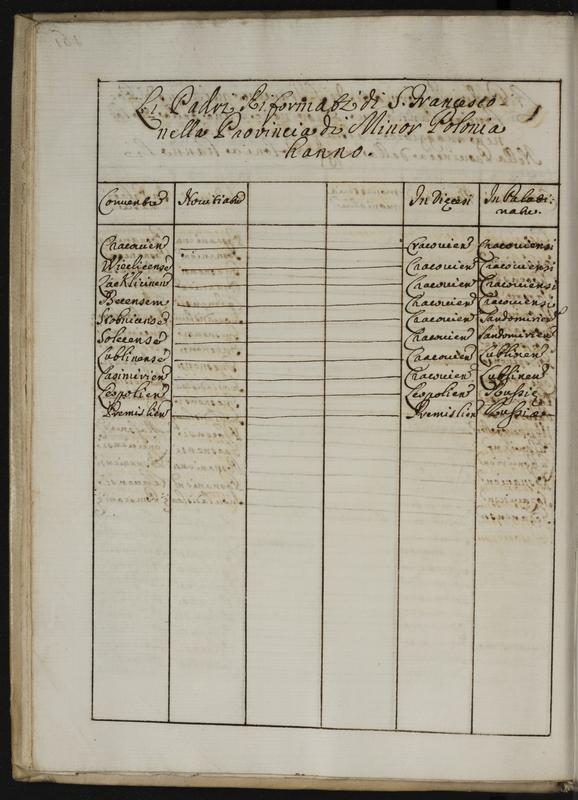 Li Padri Riformati di S. Francesco
nella Provincia di Minor Polonia
hanno.
Conventi Novitiati In Diecesi In Palati:
nati.
Cracovien Cracovien Cracoviensi
Wielicense Cracovien Cracoviensi
Zaklicinen Cracovien Cracoviensi
Becensem Cracovien Cracoviensi
Stobnicense Cracovien Sandomirien
Solecense Cracovien Sandomirien
Lublinense Cracovien Lublinen
Casimirien Cracovien Lublinen
Leopolien Leopolien Russiæ
Premislien Premislien Russiæ